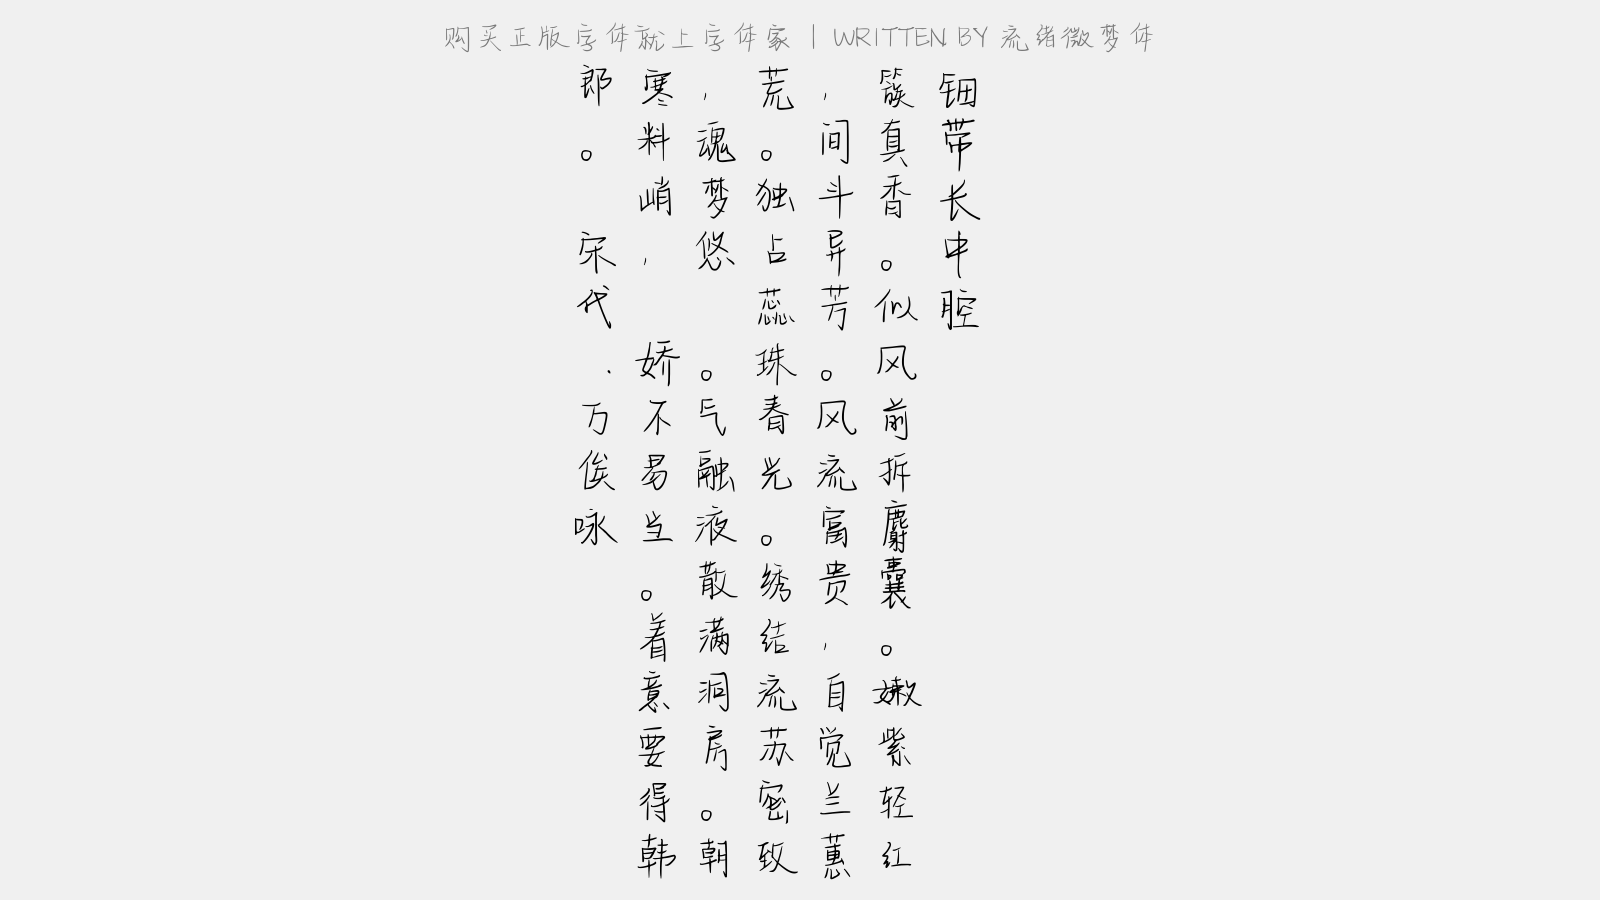 购买正版字体就上字体家 | WRITTEN BY 流绪微梦体
钿带长中腔
簇真香。似风前拆麝囊。嫩紫轻红
，间斗异芳。风流富贵，自觉兰蕙
荒。独占蕊珠春光。绣结流苏密致
，魂梦悠 。气融液散满洞房。朝
寒料峭， 娇不易当。着意要得韩
郎。 宋代 · 万俟咏